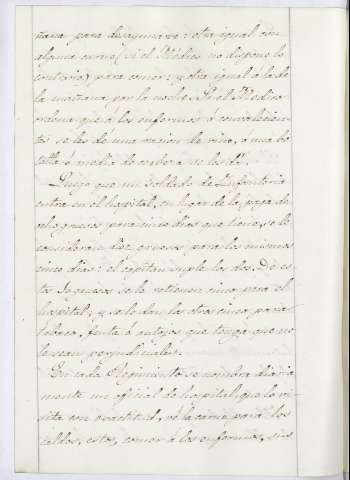 ñana para desayunarse: otra igual con
alguna carne (si el Médico no dispone lo
contrario) para comer; y otra igual á la de
la mañana por la noche. Si el Medico
ordena que á los enfermos ó convalecien-
tes se les dé una racion de vino, ó una bo
tella ó media de cerbeza se les dá.
Luego que un soldado de Infanteria
entra en el hospital, en lugar de la paga de
ocho gruesos para cinco dias que tiene, se le
consideran diez gruesos para los mismos
cinco dias: el capitan suple los dos. De es-
tos 10 gruesos se le retienen cinco para el
hospital; y se le dan los otros cinco para
tabaco, fruta ó antojos que tenga que no
le sean perjudiciales.
En cada Regimiento se nombra diaria
mente un oficial de hospital, que lo vi-
sita con exactitud, vé la carne para los
caldos, estos, comer á los enfermos, sus